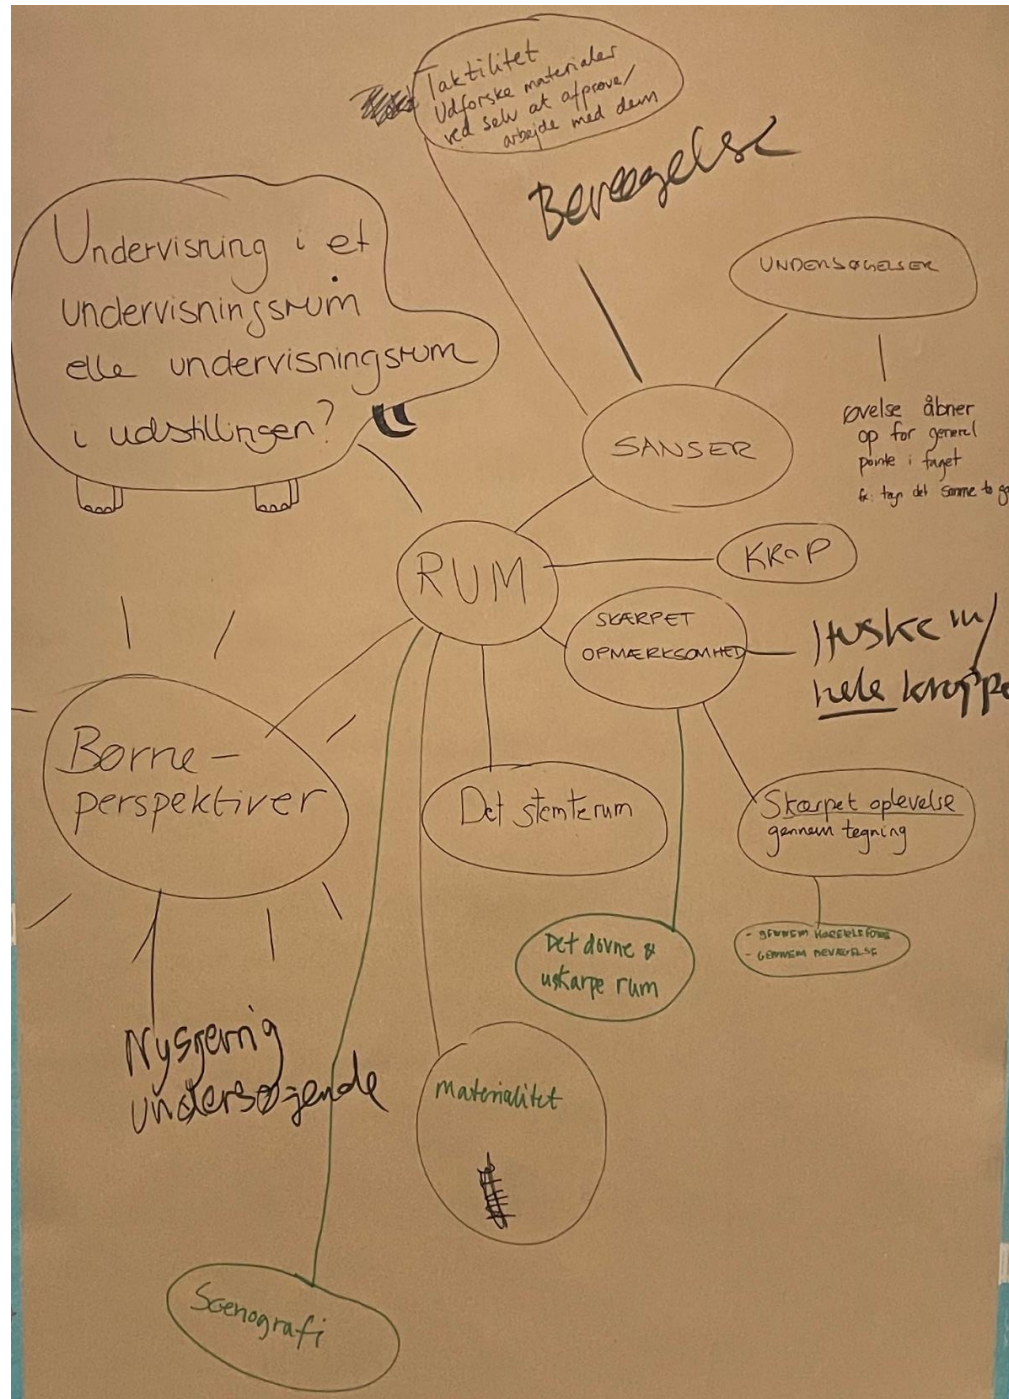 Taktilitet
Udforske materialer
ved selv at afprøve/
arbejde med dem
Bevægelse
UNDERSØGELSER
øvelse åbner
op for generel
pointe i faget
Undervisning i et
undervisningsrum
elle undervisningsrum
i udstillingen?
SANSER
RUM
KROP
SKÆRPET
OPMÆRKSOMHED
Huske m/
hele kroppe
Børne-
perspektiver
Det stemte rum
Skærpet oplevelse
gennem tegning
Det døvne &
uskarpe rum
- GENNEM
- GENNEM BEVÆGELSE
Nysgerrig
undersøgende
Materialitet
Scenografi